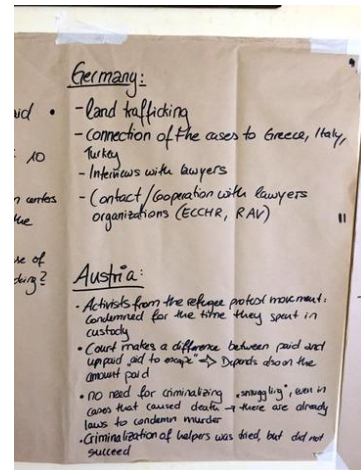 Germany:
- land trafficking
- Connection of the cases to Greece, Italy,
Turkey
- Interviews with lawyers
- Contact/Cooperation with lawyers
organizations (ECCHR, RAV)
Austria:
• Activists from the refugee protest movement:
condemned for the time they spent in
custody
• Court makes a difference between paid and
unpaid „aid to escape" -> Depends also on the
amount paid
• no need for criminalizing „smuggling", even in
cases that caused death → there are already
laws to condemn murder
• Criminalization of helpers was tried, but did not
succeed
10